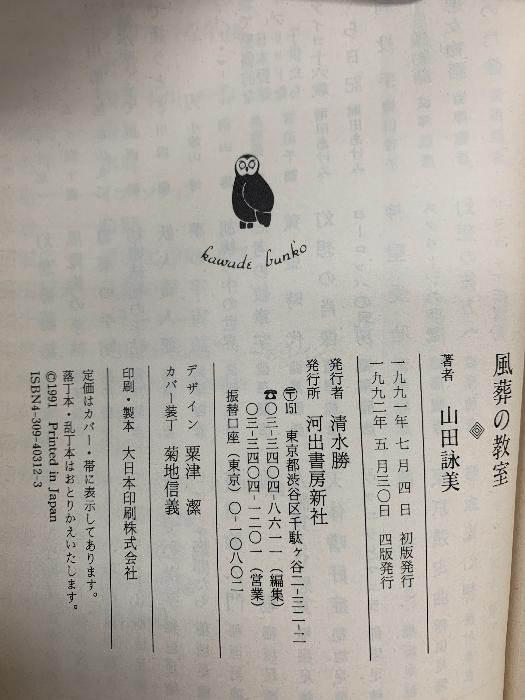 kawade bunko
風葬の教室
著者 山田詠美
一九九一年七月四日 初版発行
一九九二年五月三〇日 四版発行
発行者 清水勝
発行所 河出書房新社
〒151 東京都渋谷区千駄ヶ谷二-三二-二
☎〇三-三四〇四-八六一一(編集)
〇三-三四〇四-一二〇一(営業)
振替口座(東京)〇-一〇八〇二
デザイン 粟津潔
カバー装丁 菊地信義
印刷・製本 大日本印刷株式会社
定価はカバー・帯に表示してあります。
落丁本・乱丁本はおとりかえいたします。
©1991 Printed in Japan
ISBN4-309-40312-3